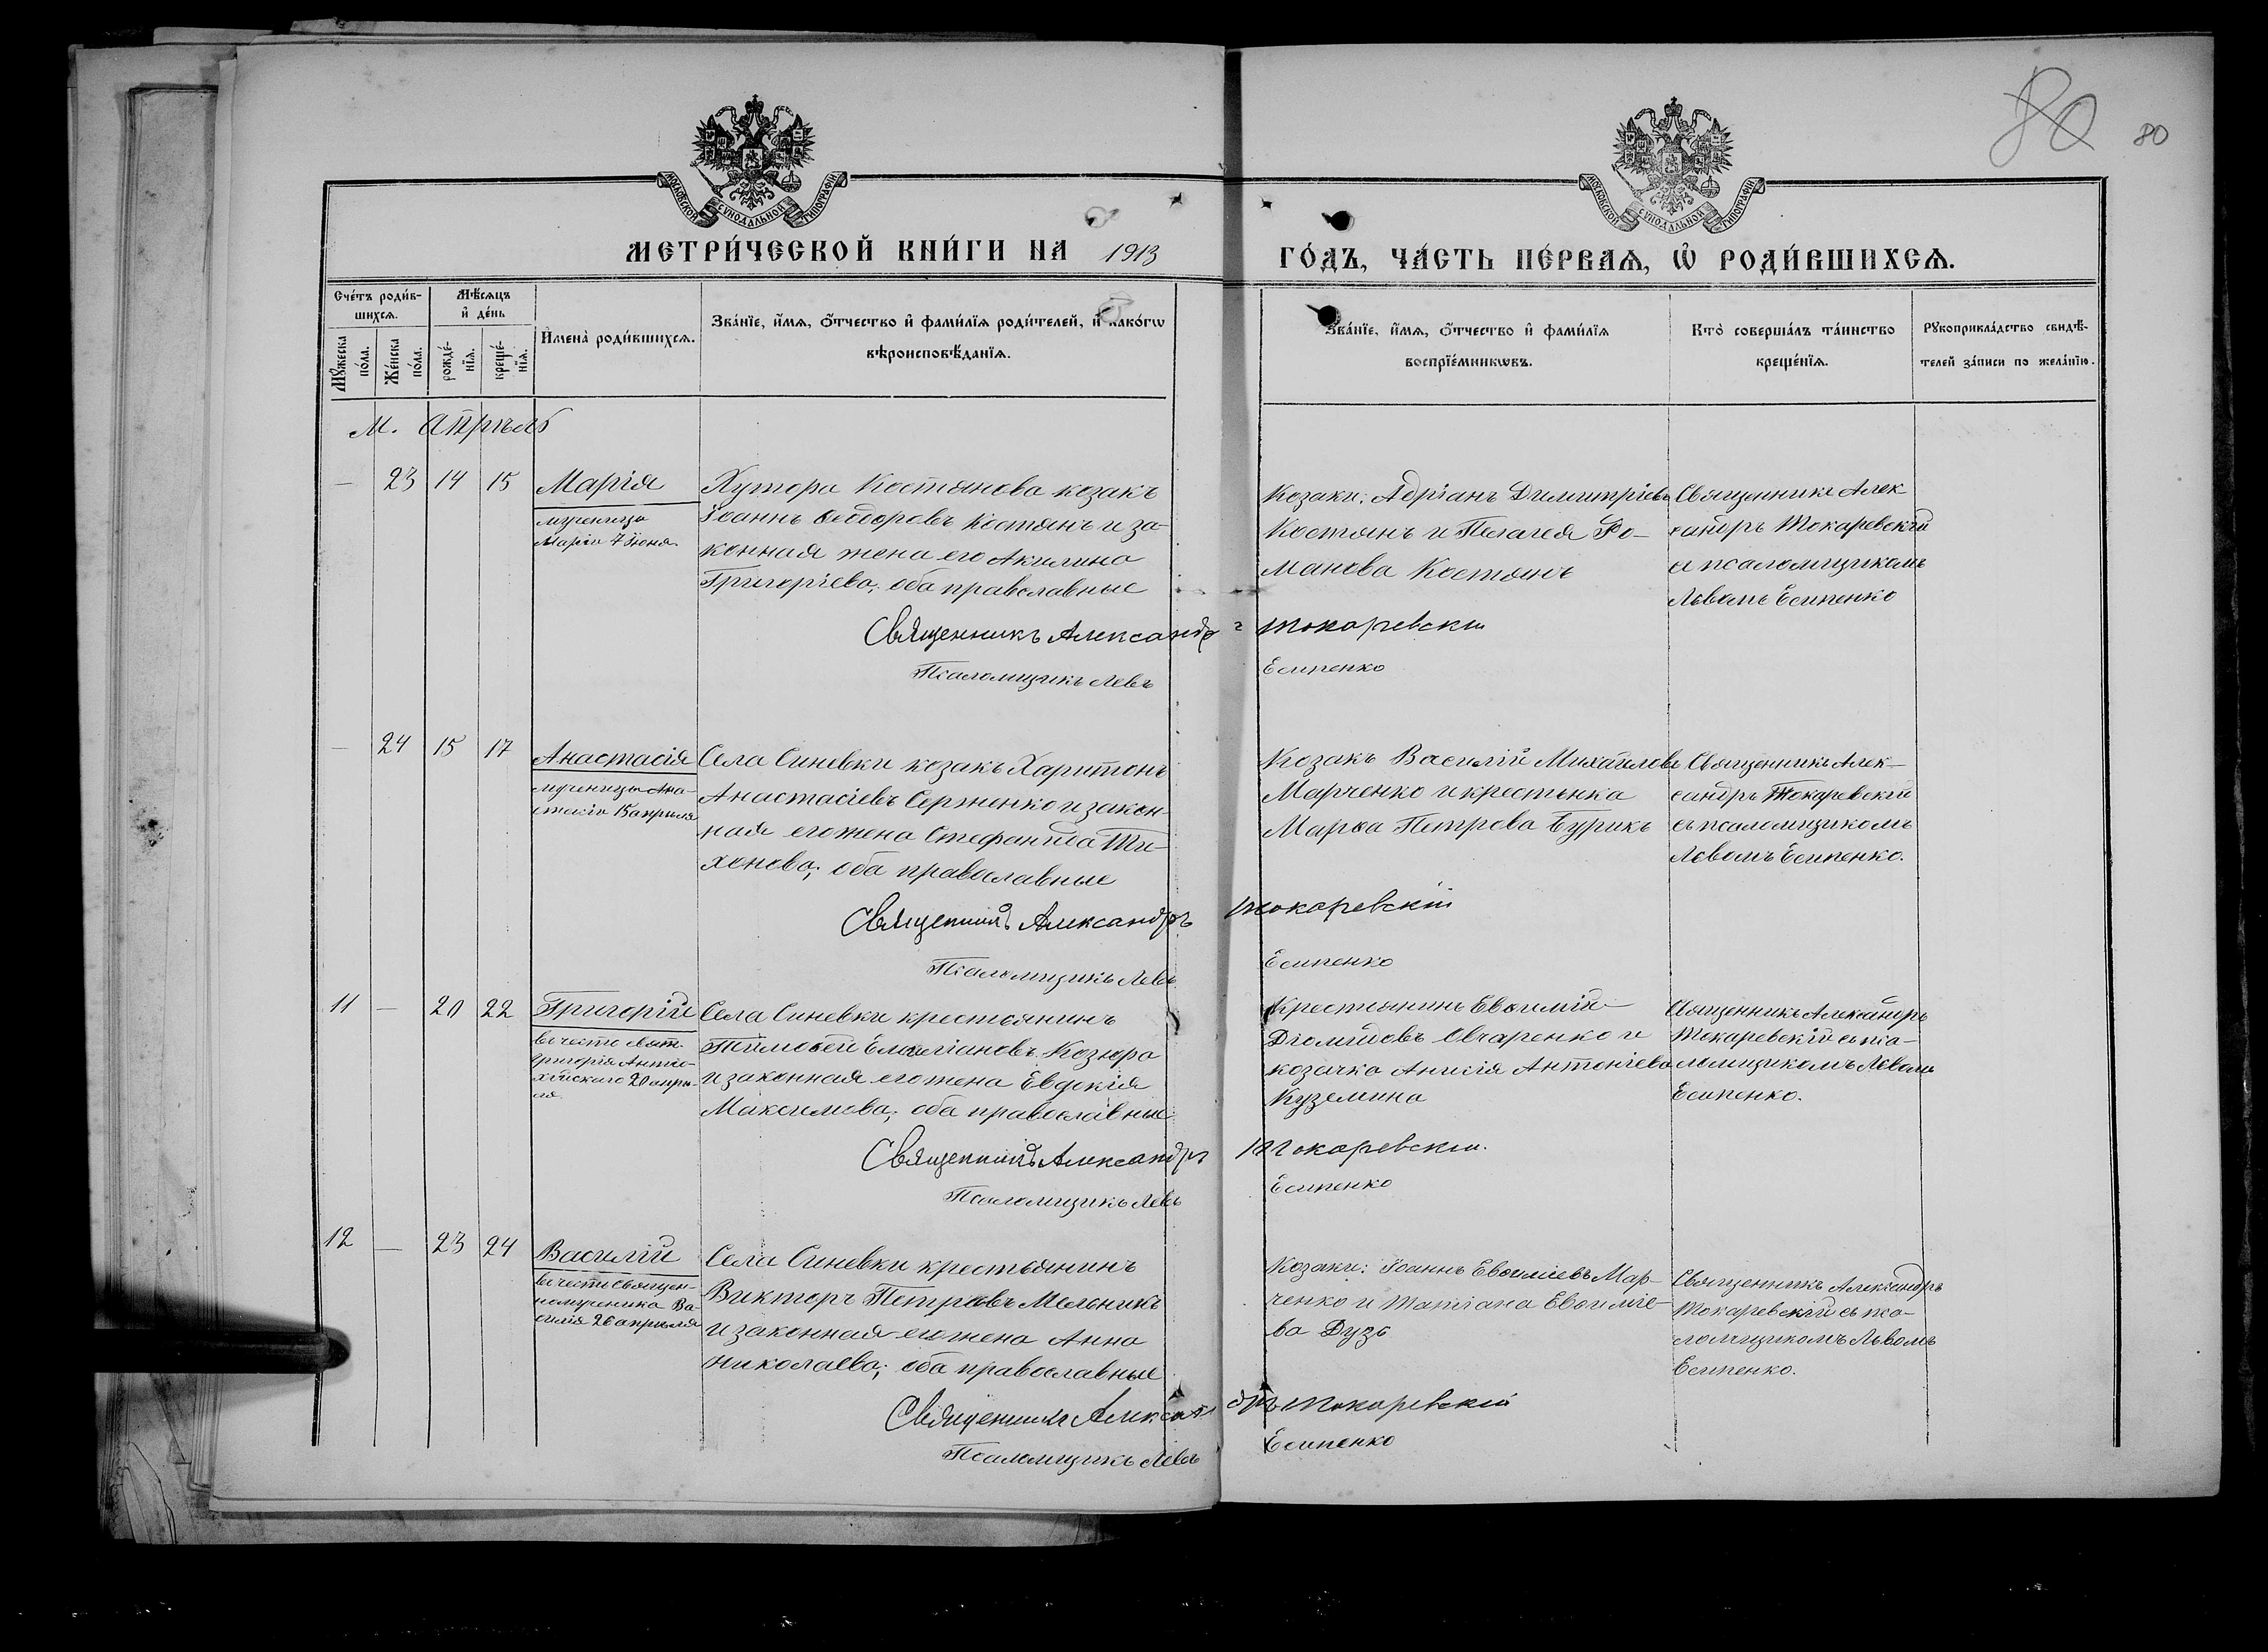 80
80
МОСКОВСКОЙ СѴНОДАЛЬНОЙ ТИПОГРАФІИ
МОСКОВСКОЙ СѴНОДАЛЬНОЙ ТИПОГРАФІИ
МЕТРИ́ЧЕСКОЙ КНИ́ГИ НА 1913
ГО́ДЪ, ЧА́СТЬ ПЕ́РВАЯ, Ѡ РОДИ́ВШИХСЯ.
Сче́тъ роди́в-
шихся.
Мꙋ́жеска по́ла.
Же́нска по́ла.
Мѣ́сяцъ
и҆ де́нь
рожде́-
нїя.
креще́-
нїя.
И҆мена̀ роди́вшихся.
Зва́нїе, и҆́мя, ѻ҆́тчество и҆ фами́лїя роди́телей, и҆ како́гѡ
вѣроисповѣ́данїя.
Зва́нїе, и҆́мя, ѻ҆́тчество и҆ фами́лїя
воспрїе́мникѡвъ.
Кто̀ соверша́лъ та́инство
креще́нїя.
Рꙋкоприкла́дство свидѣ́-
телей за́писи по жела́нїю.
М. Апрѣль
— 23 14 15 Марія
мученицы
Маріи 7 Іюня.
Хутора Костянова козакъ
Іоаннъ Ѳеодоровъ Костянъ и за-
конная жена его Акилина
Григоріева; оба православные
Козаки: Адріанъ Димитріевъ
Костянъ и Пелагея Ро-
манова Костянъ
Священникъ Алек
сандръ Токаревскій
съ псаломщикомъ
Львомъ Есипенко
Священникъ Александръ Токаревскій
Псаломщикъ Левъ Есипенко
— 24 15 17 Анастасія
мученицы Ана-
стасіи 15 апрѣля
Села Синевки козакъ Харитонъ
Анастасіевъ Серженко и закон-
ная его жена Стефанида Ти-
хонова; оба православные
Козакъ Василій Михаиловъ
Марченко и крестьянка
Марѳа Петрова Бурикъ
Священникъ Алек-
сандръ Токаревскій
съ псаломщикомъ
Львомъ Есипенко.
Священникъ Александръ Токаревскій
Псаломщикъ Левъ Есипенко
11 — 20 22 Григорій
въ честь Свят.
Григорія Антіо-
хійскаго 20 апрѣ-
ля.
Села Синевки крестьянинъ
Тимоѳей Емиліановъ Козюра
и законная его жена Евдокія
Максимова; оба православные
Крестьянинъ Евѳимій
Діомидовъ Овчаренко и
козачка Анисія Антоніева
Куземина
Священникъ Александръ
Токаревскій съ пса-
ломщикомъ Львомъ
Есипенко.
Священникъ Александръ Токаревскій.
Псаломщикъ Левъ Есипенко
12 — 23 24 Василій
въ честь Священ-
номученика Ва-
силія 26 апрѣля
Села Синевки крестьянинъ
Викторъ Петровъ Мельникъ
и законная его жена Анна
Николаева; оба православные
Козаки: Іоаннъ Евѳиміевъ Мар-
ченко и Татіана Евѳиміе-
ва Дузь
Священникъ Александръ
Токаревскій съ пса-
ломщикомъ Львомъ
Есипенко.
Священникъ Александръ Токаревскій
Псаломщикъ Левъ Есипенко